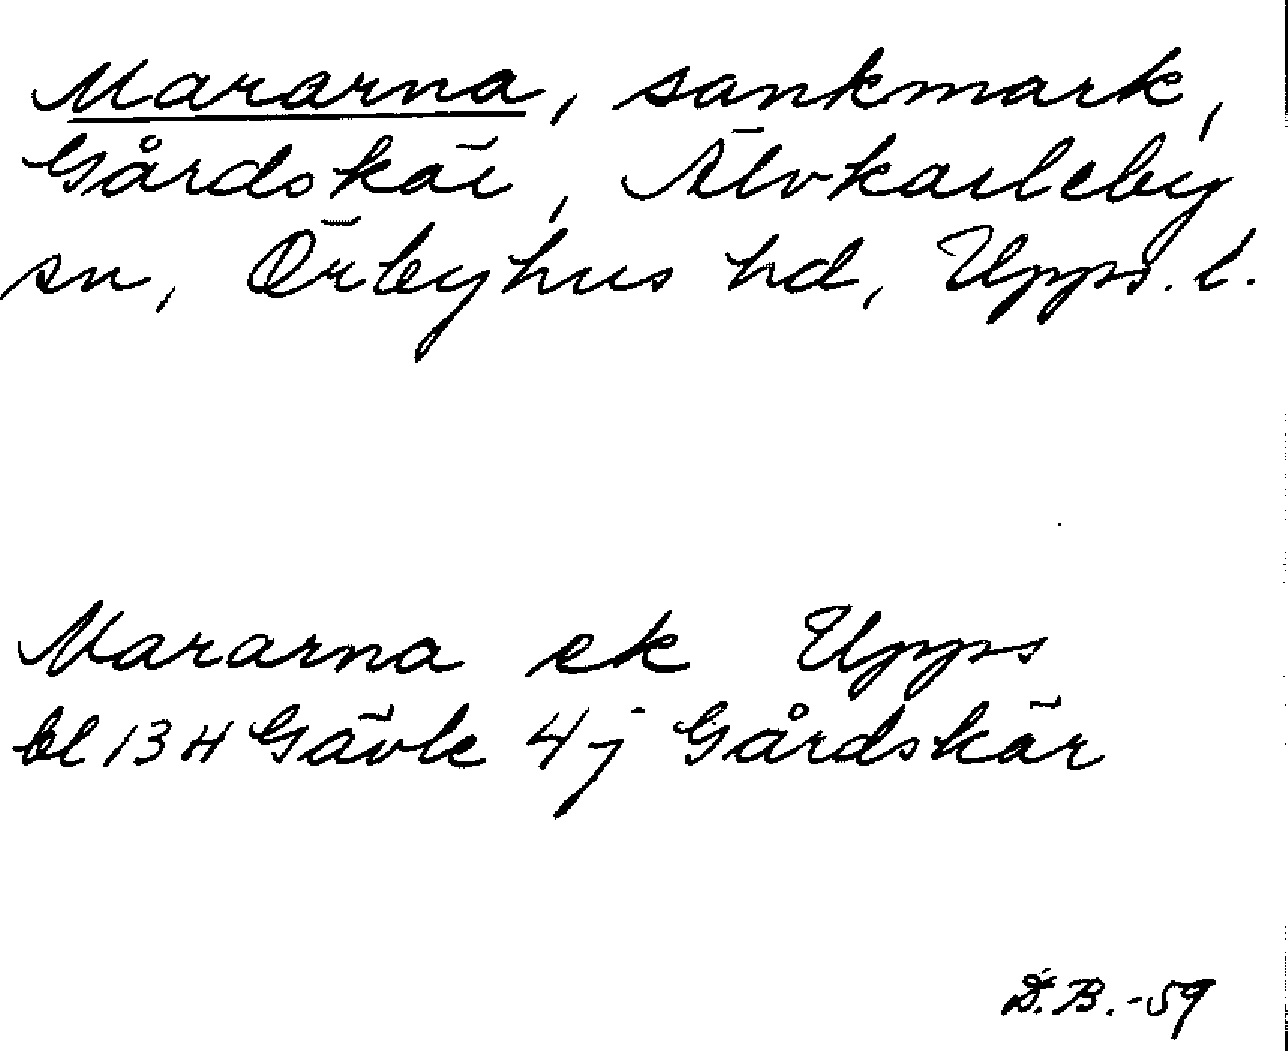 Mararna, sankmark,
Gårdskär, Älvkarleby
sn, Örbyhus hd, Upps. l.
Mararna ek Upps
bl 13 H Gävle 4 j Gårdskär
D.B.-59